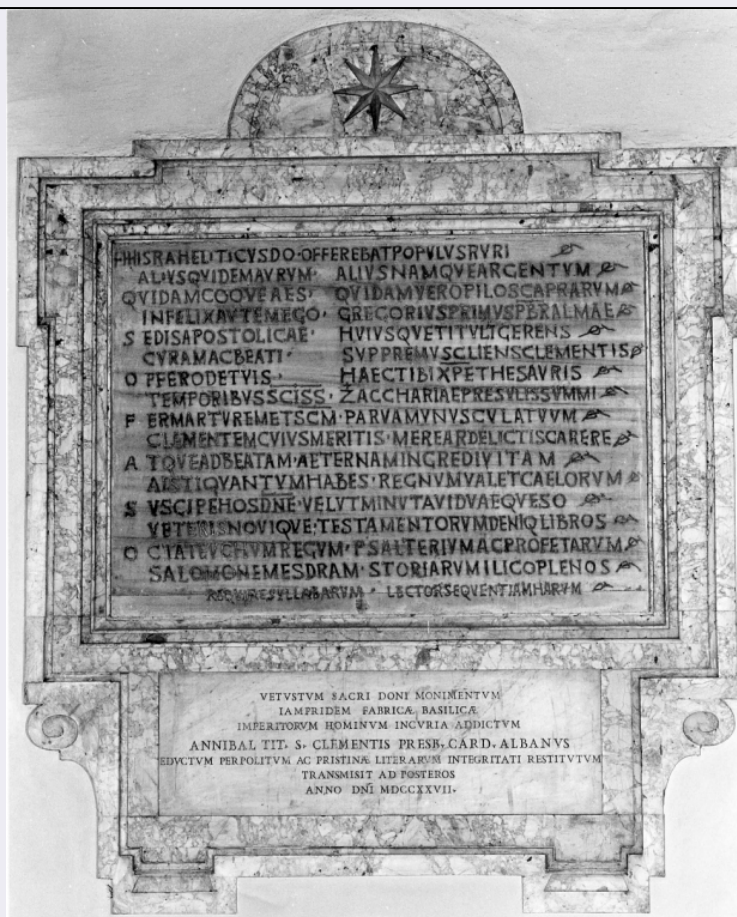 HISRAHELITICUSDO·OFFEREBATPOPVLVSRVRI
ALIVSQVIDEMAVRVM· ALIVSNAMQVEARGENTVM
QVIDAMCOQVEAES· QVIDAMVEROPILOSCAPRARVM
INFELIXAVTEMEGO· GREGORIVSPRIMVSPERALMAE
S EDISAPOSTOLICAE· HVIVSQVETITVLIGERENS
CVRAMACBEATI· SVPPREMVSCLIENSCLEMENTIS
O FFERODETVIS· HAECTIBIXPETHESAVRIS
TEMPORIBVSSCISS· ZACCHARIAEPRESVLISSVMMI
P ERMARTVREMETSCM·PARVAMVNVSCVLATVVM
CLEMENTEMCVIVSMERITIS·MEREARDELICTISCARERE
A TQVEADBEATAM·AETERNAMINGREDIVITAM
AISTIQVANTVMHABES·REGNVMVALETCAELORVM
S VSCIPEHOSDNE·VELVTMINVTAVIDVAEQVESO
VETERISNOVIQVE·TESTAMENTORVMDENIQLIBROS
O CTATEVCHVMREGVM·PSALTERIVMACPROFETARVM
SALOMONEMESDRAM·STORIARVMILICOPLENOS
REQVIRESVLLABARVM· LECTORSEQVENTIAMHARVM
VETVSTVM SACRI DONI MONIMENTVM
IAMPRIDEM FABRICÆ BASILICÆ
IMPERITORVM HOMINVM INCVRIA ADDICTVM
ANNIBAL TIT. S. CLEMENTIS PRESB. CARD. ALBANVS
EDVCTVM PERPOLITVM AC PRISTINÆ LITERARVM INTEGRITATI RESTITVTVM
TRANSMISIT AD POSTEROS
ANNO DNI MDCCXXVII.